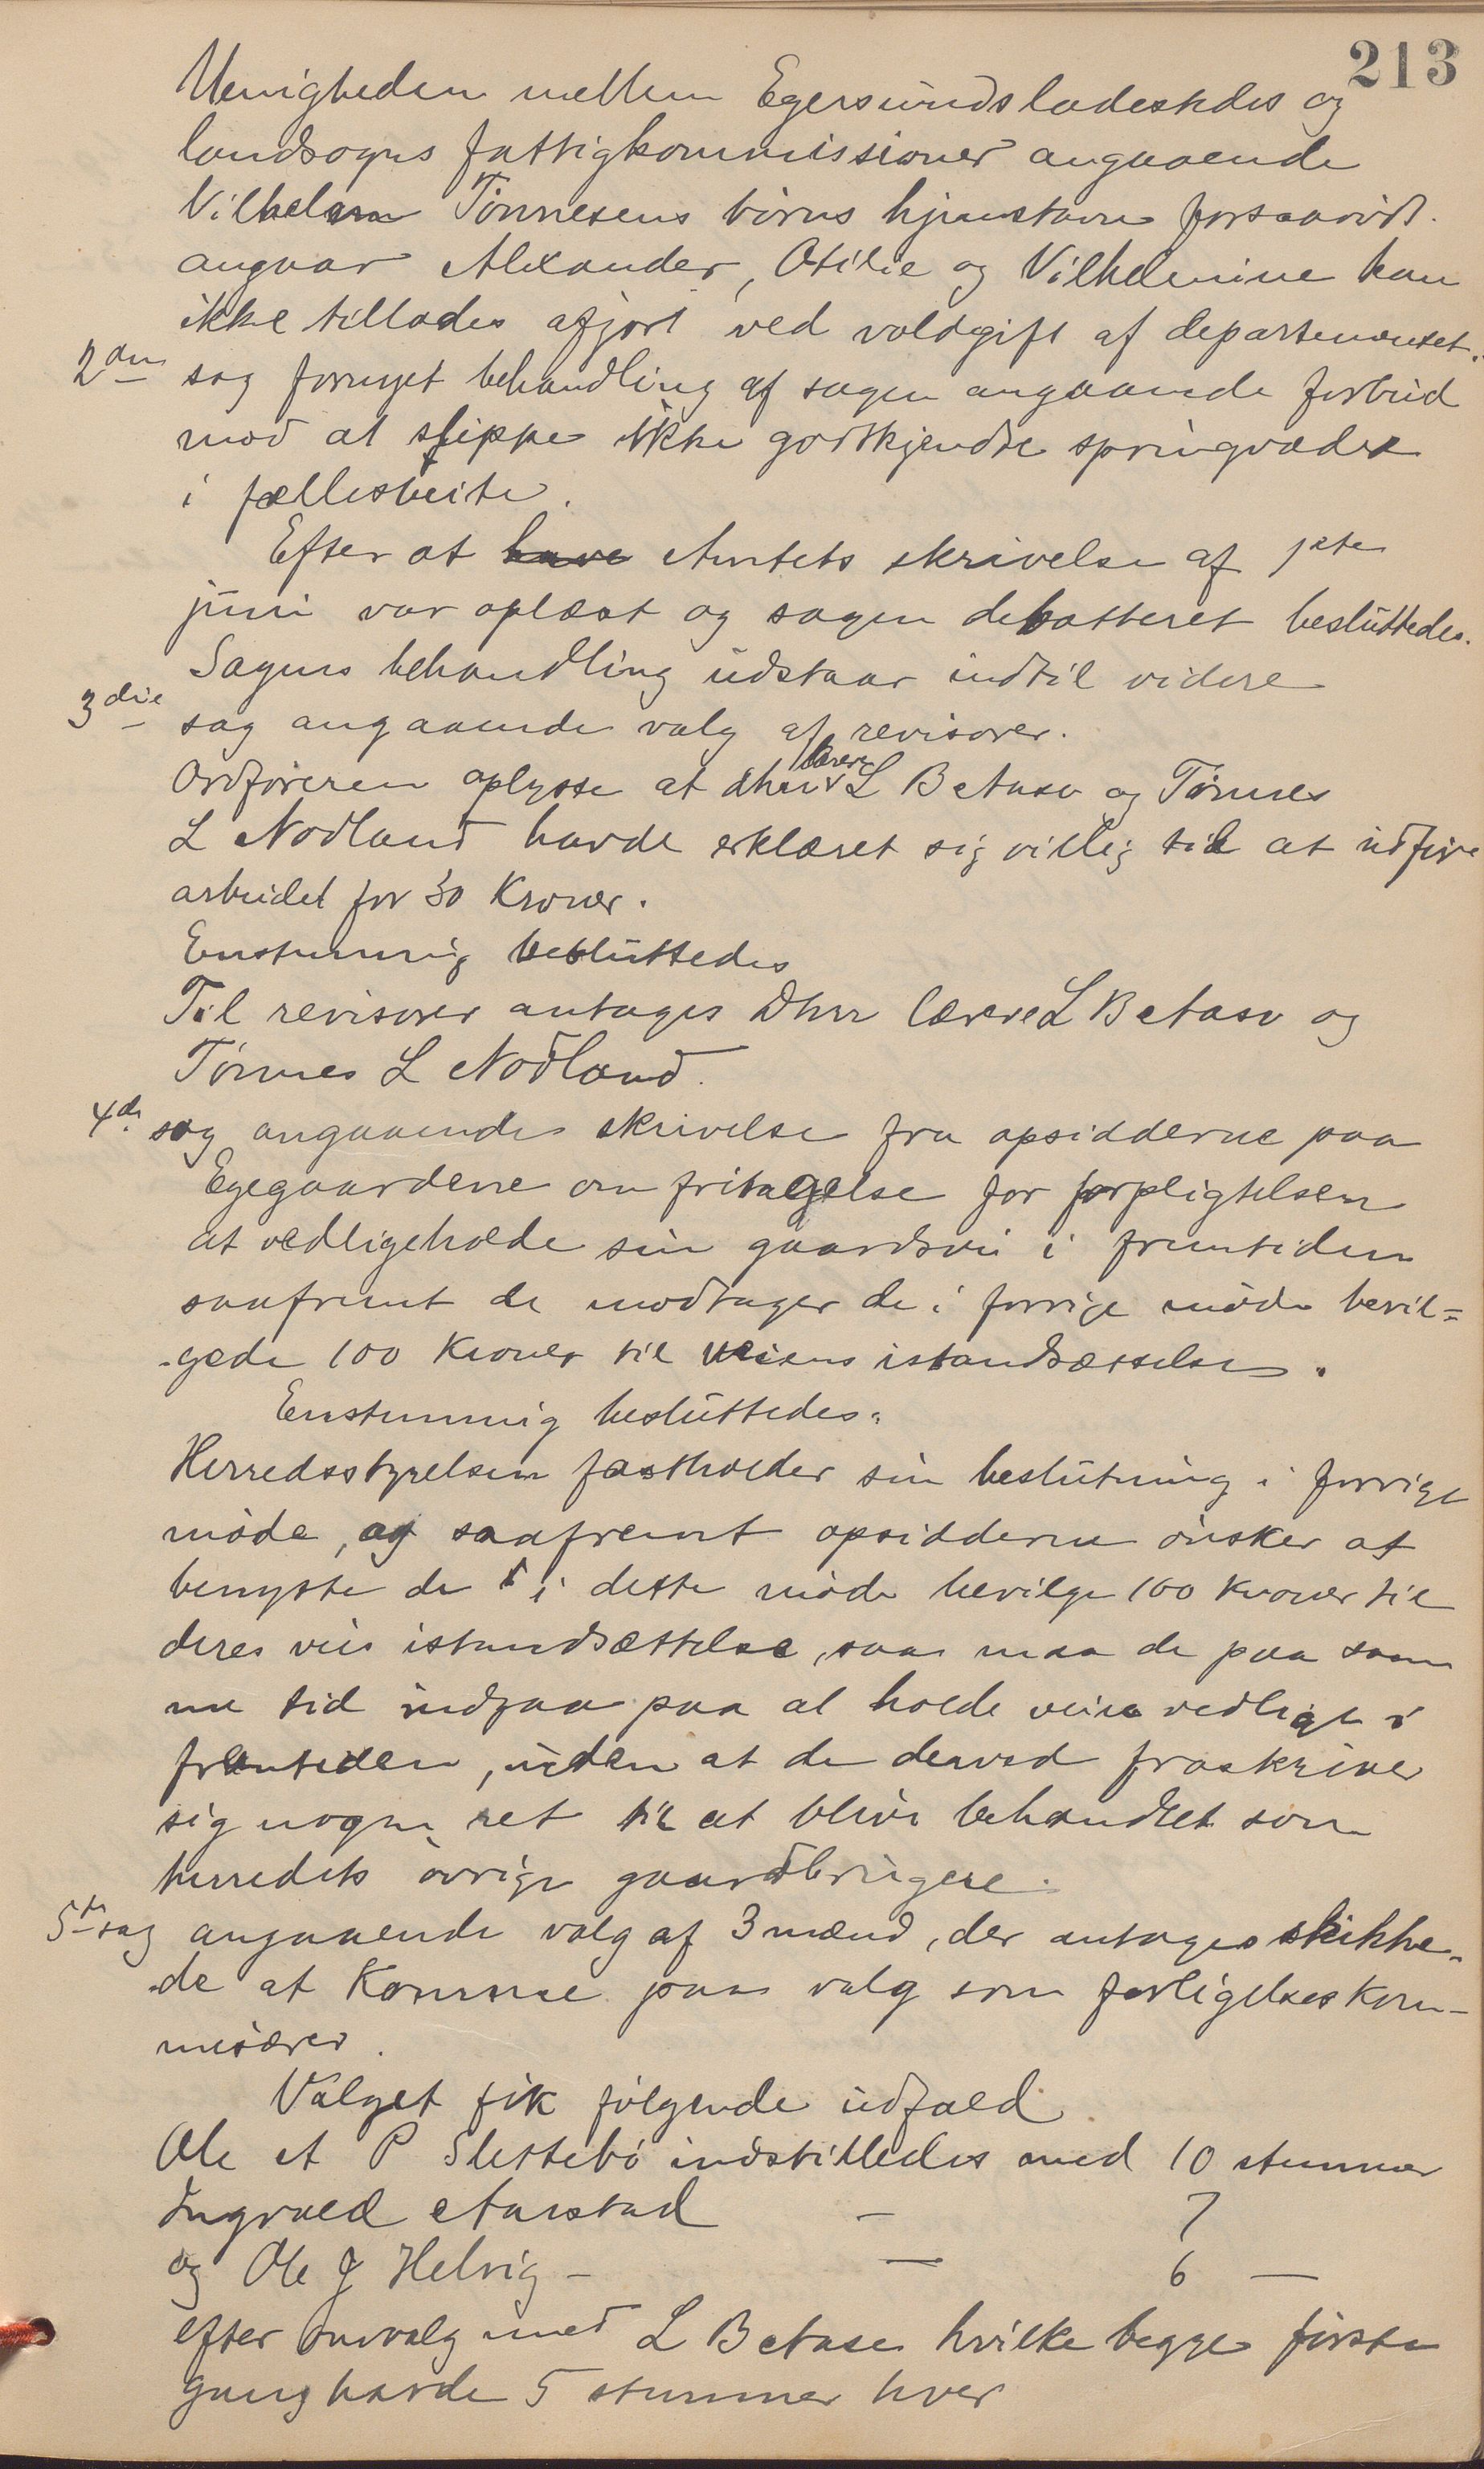 213
Uenigheden mellem Egersunds ladesteds og
landsogns fattigkommissioner angaaende
Vilhelm Tønnesens børns hjemstavn forsaavidt
angaar Alexander, Otilie og Vilhelmine kan
ikke tillades afgjort ved voldgift af departementet.
2den sag fornyet behandling af sagen angaaende forbud
mod at slippe ikke godkjendte springvædre
i fællesbeite.
Efter at have Amtets skrivelse af 1ste
juni var oplæst og sagen debatteret besluttedes.
Sagens behandling udstaar indtil videre
3die sag angaaende valg af revisorer.
Ordføreren oplyste at dhrr lærer L B Aase og Tønnes
L Nodland havde erklæret sig villig til at udføre
arbeidet for 30 Kroner.
Enstemmig besluttedes
Til revisorer antages Dhrr lærere L B Aase og
Tønnes L Nodland.
4de sag angaaende skrivelse fra opsidderne paa
Egegaardene om fritagelse for forpligtelsen
at vedligeholde sin gaardsvei i fremtiden
saafremt de modtager de i forrige møde bevil=
-gede 100 Kroner til veiens istandsættelse.
Enstemmig besluttedes.
Herredsstyrelsen fastholder sin beslutning i forrige
møde, og saafremt opsidderne ønsker at
benytte de i dette møde bevilge 100 kroner til
deres veis istandsættelse, saa maa de paa sam
me tid indgaa paa at holde veien vedlige i
fremtiden, uden at de derved fraskriver
sig nogen ret til at blive behandlet som
herredets øvrige gaardbrugere.
5te sag angaaende valg af 3 mænd, der antages skikke-
-de at Komme paa valg som forligelseskom-
misærer.
Valget fik følgende udfald
Ole A P Slettebø indstilledes med 10 stemmer
Ingvald Aarstad — 7
og Ole J Helvig - — 6 —
efter omvalg med L B Aase hvilke begge første
gang havde 5 stemmer hver